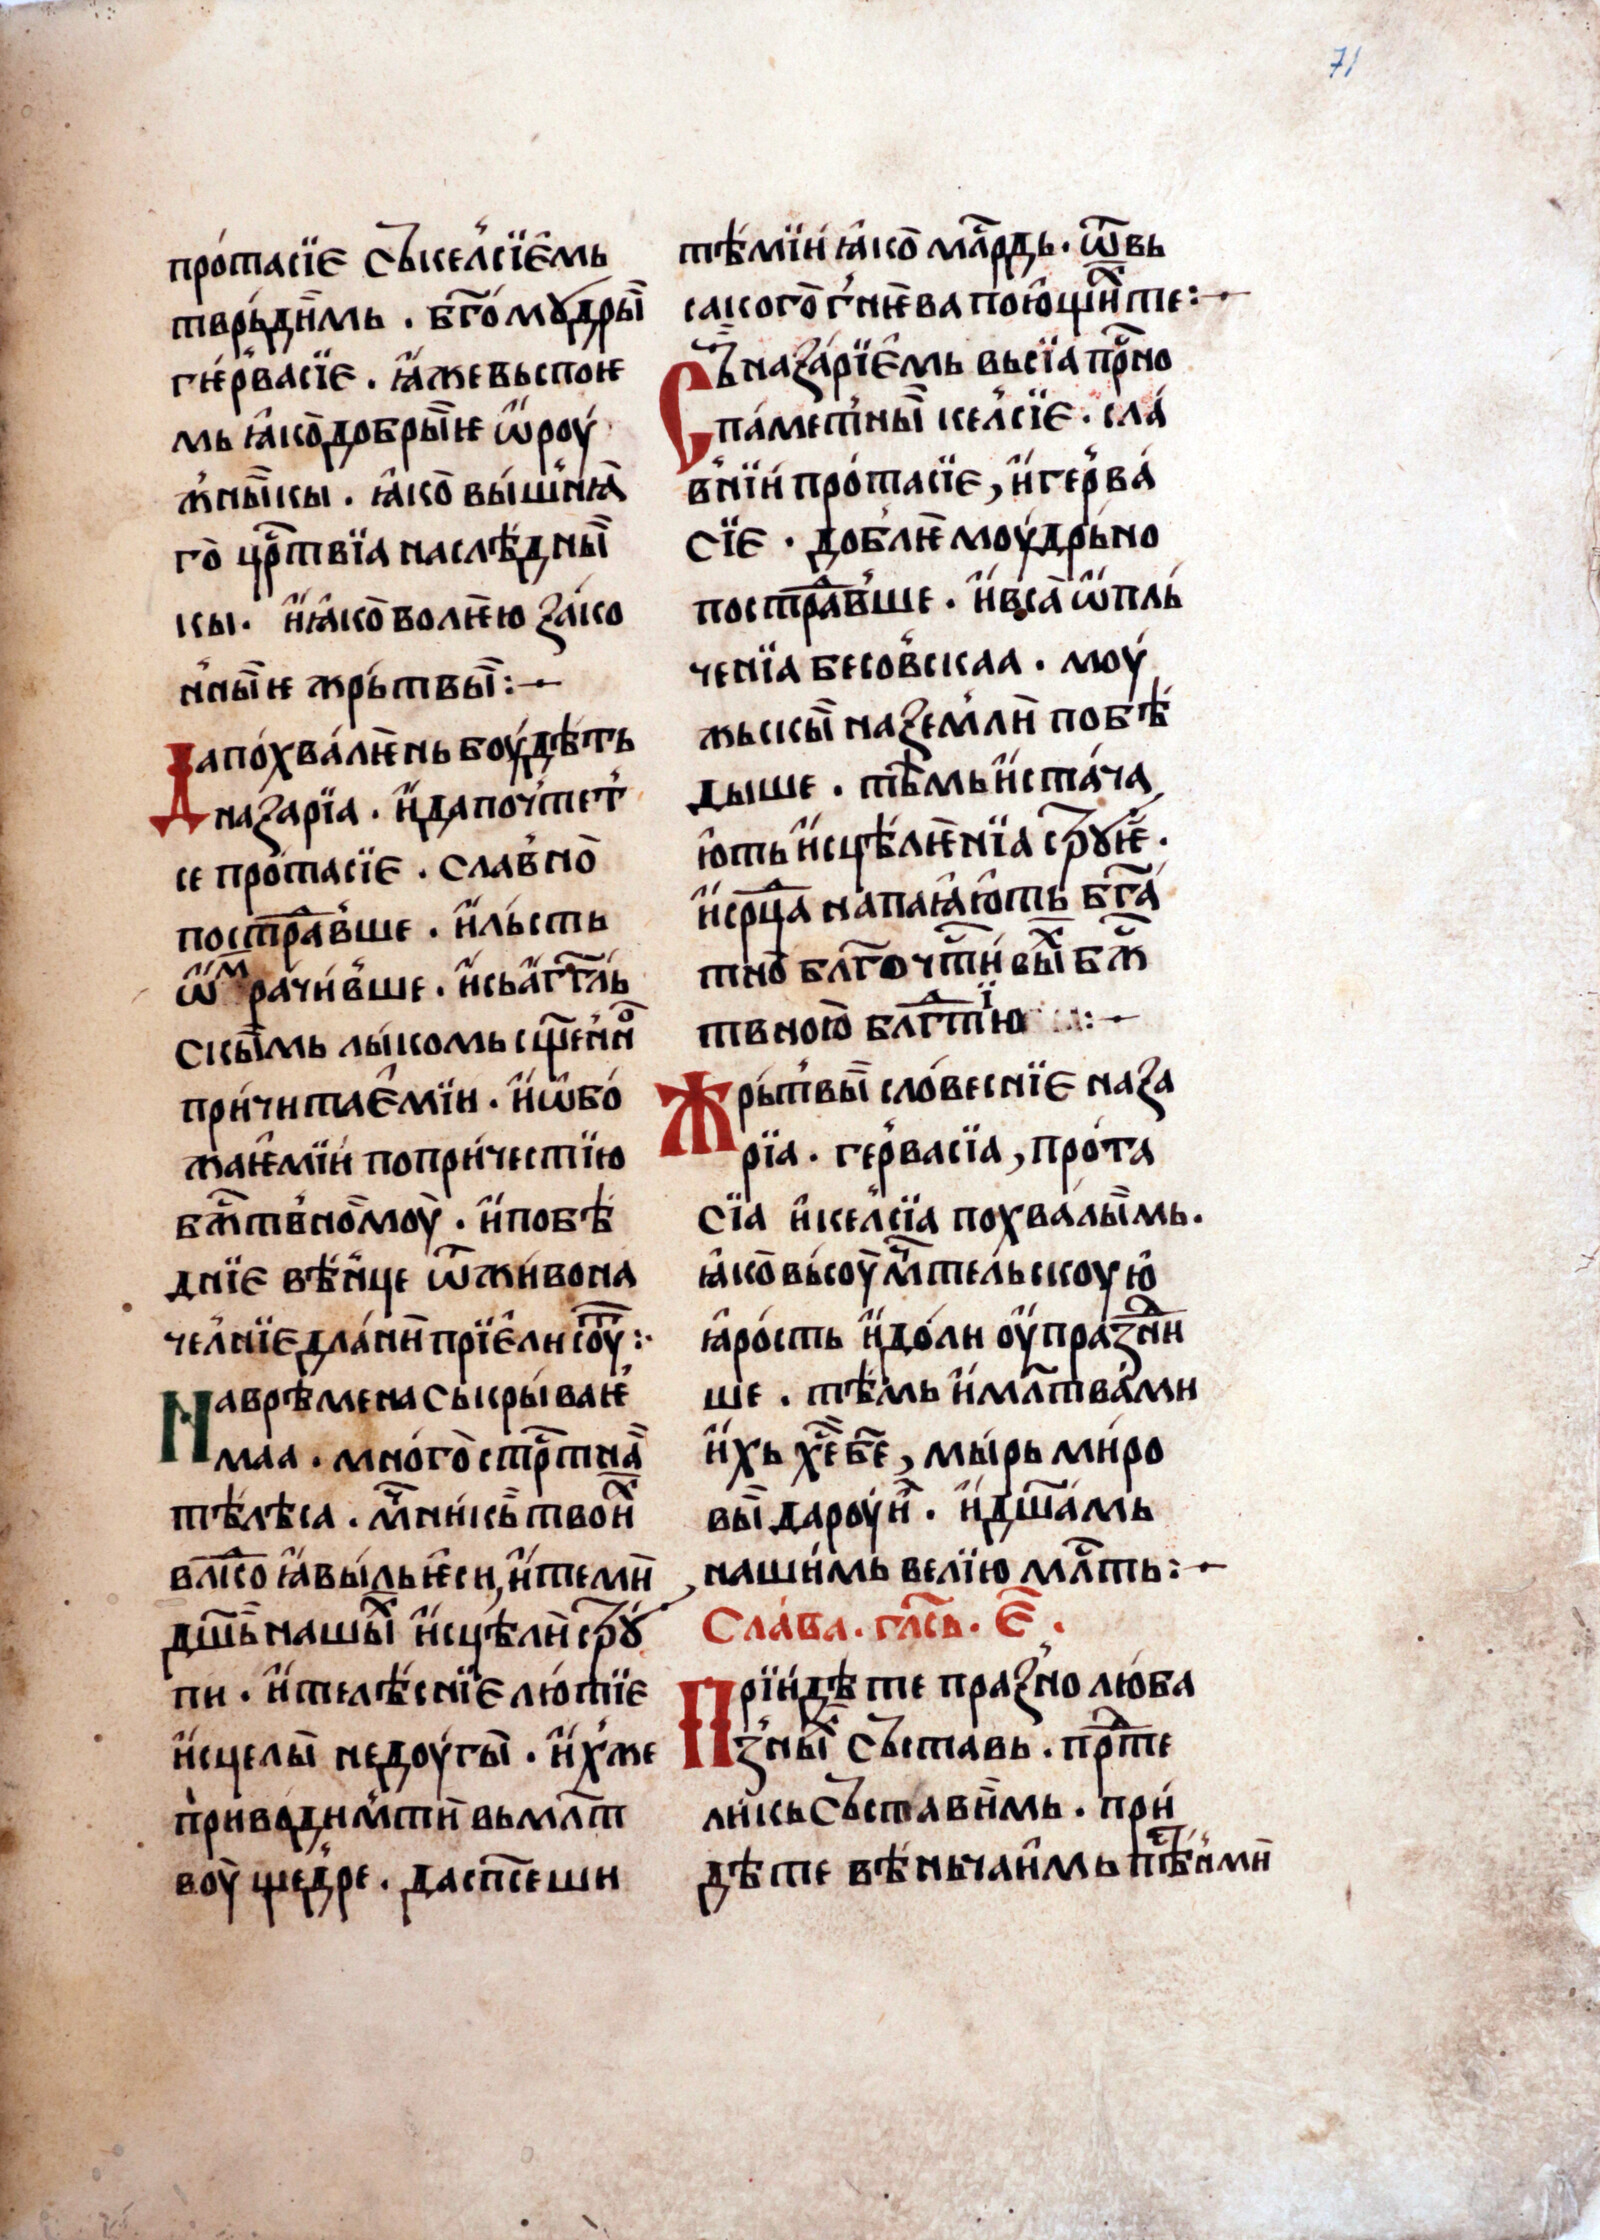 71
про́тасїе съкел́сїе̂мь
тврь́дн̏мь . бг҃о́моудры̏
гѥ́р́васїе . ꙗ҆́жевьспоѥ
мь ꙗ҆ко̀добры̏ѥ ѡ҆̏роу́
ж́ны̏кы . ꙗ҆ко̀ вы́ш́нꙗ̀
го̀ црⷭ҇твїа наслѣ́дны̏
кы . и҆̏ꙗ҆ко̀волѥ̀ю за́ко
н́ны̏ѥ жрь́твы̏ :—
Дапо́хва́лѥ̀нь боу́дѣ́ть
назарїа . и҆̏дапоч́тет́
се про́тасїе . слав́но̀
постра́в́ше . и҆̏ль́сть
ѡ҆̏мрачи́в́ше . и҆̏сьа҆́гг҃ль
скы̏мь лы́комь сщ҃е́н́но̀
причитае̂мїи . и҆̏ѡ҆бо́
жаѥ̂мїи́ попри́честїю
бжⷭ҇тв́но̀моу̀ . и҆̏побѣ́
днїе вѣ́н́це ѿжи́вона
чел́нїедла́нѝ прїе̂ли соу҃ :·
На врѣ́мена съкры́ваѥ́
маа . мно́го̀ стрⷭ҇тна̏
тѣ́лѣса . мч҃ни́кь̏ твои̏ⷯ
вл҃ко ꙗ҆́вы́ль ѥ҆си , и҆̏темѝ
дш҃ь̏ нашы̏ⷯ и҆̏сцѣ́лѝ строу́
пи . и҆̏телѣ́снїе лю́тїе
и҆̏сцелы̏ недоу́гы̏ . и҆̏х́же
приво́дим́тѝ вьмл҃т
воу̀ ще́д́ре . даспс҃еши
тѣ́мїи́ ꙗ҆ко̀ млⷭ҇рдь . ѿвь
сакого̀ ѓнѥ̀ва пою̂щи̏ⷯте :—
Съ̏наза́рїе̂мь вьсїа прⷭ҇но
па́мет́ны̏ кел́сїе . сла́
в́нїи́ про́тасїе , и҆̏гер́ва́
сїе . доб́лѥ̀моу́дрь́но
постра́в́ше . и҆̏вса̀ ѡ҆̏пль́
ченїа бесов́скаа . моу́
жьскы̏ наземлѝ побѣ́
дьıше . тѣ́мь и҆̏ста́ча
ю҆ть и҆̏сцѣ́лѥ̀нїа строуѥ̏ .
и҆̏срⷣца напаꙗ҆ю҆ть бг҃а́
тно̀ блг҃очⷭ҇ти́вы̏ⷯ бжⷭ҇
твною̀ блгⷣтїю :—
Жрь́т́вы̏ сло́веснїе наза
рїа . гер́васїа , про́та
сїа и҆̏кел́сїа похва́лы̏мь .
ꙗ҆ко̀ вь́соу̀ мⷱ҇тельскоую̂
ꙗ҆́рость и҆̏до́ли оу҆̏праздни́
ше . тѣ́мь и҆̏мл҃тва́ми
и҆̏хь хⷭ҇е бж҃е , мы́рь ми́ро
вы̏ дароуѝ . и҆̏дш҃а́мь
наши́мь велїю млⷭ҇ть :—
Сла́ва . гла́сь . е҃ .
Прїи́дѣте праз́но лю́ба
з́ны̏ⷯ съставь . прⷣте
ли́кьсъставѝмь . при́
дѣте вѣ́ньчаи̂мь пѣⷭ҇н́мѝ